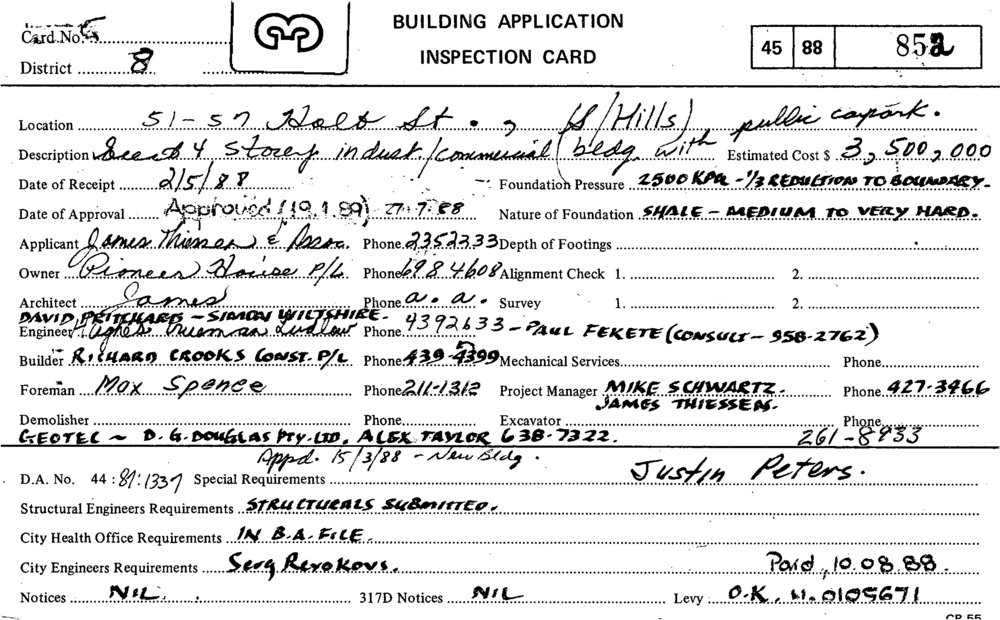 Card No. 5
District 8
BUILDING APPLICATION
INSPECTION CARD
45 88 852
Location 51-57 Holt St., (S/Hills) public carpark.
Description Erect 4 Storey indust./commercial bldg. with Estimated Cost $ 3,500,000
Date of Receipt 2/5/88 Foundation Pressure 2500 KPa - 1/3 REDUCTION TO BOUNDARY.
Date of Approval Approved (19.1.89) 27.7.88 Nature of Foundation SHALE - MEDIUM TO VERY HARD.
Applicant James Thiessen & Assoc. Phone 2352233 Depth of Footings
Owner Pioneer House P/L Phone 698 4608 Alignment Check 1. 2.
Architect James Phone a. a. Survey 1. 2.
DAVID PRITCHARD - SIMON WILTSHIRE.
Engineer Hughes Trueman Ludlow Phone 4392633 - PAUL FEKETE (CONSULT - 958-2762)
Builder RICHARD CROOKS CONST. P/L Phone 439-4399 Mechanical Services Phone
Foreman Max Spence Phone 211-1312 Project Manager MIKE SCHWARTZ. Phone 427-3466
JAMES THIESSEN.
Demolisher Phone Excavator Phone
GEOTEC ~ D.G. DOUGLAS PTY. LTD. ALEX TAYLOR 638-7322. 261-8933
Appd. 15/3/88 - New Bldg.
D.A. No. 44 : 87:1337 Special Requirements Justin Peters.
Structural Engineers Requirements STRUCTURALS SUBMITTED.
City Health Office Requirements IN B.A. FILE.
City Engineers Requirements Serg Rerokovs. Paid 10.08.88.
Notices NIL. 317D Notices NIL Levy O.K. N. 0105671
CP 55